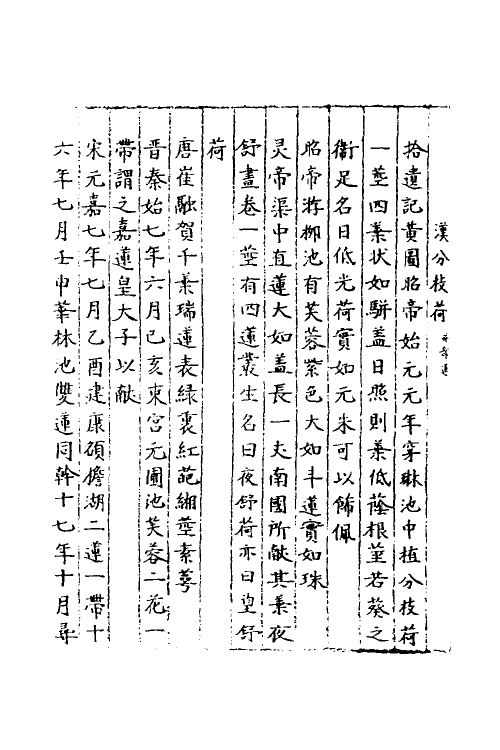 漢分枝荷
拾遺記黃圖昭帝始元元年穿琳池中植分枝荷
一莖四葉状如駢盖日照則葉低蔭根莖若葵之
衞足名曰低光荷實如元朱可以飾佩
昭帝游柳池有芙蓉紫色大如斗蓮實如珠
灵帝渠中直蓮大如盖長一丈南國所献其葉夜
舒晝卷一莖有四蓮叢生名曰夜舒荷亦曰皇舒
荷
唐崔融賀千葉瑞蓮表緑裏紅葩緗莖素蕚
晉秦始七年六月己亥東宮元圃池芙蓉二花一
帶謂之嘉蓮皇大子以献
宋元嘉七年七月乙酉建康碩檐湖二蓮一帶十
六年七月壬申華林池雙蓮同幹十七年十月尋